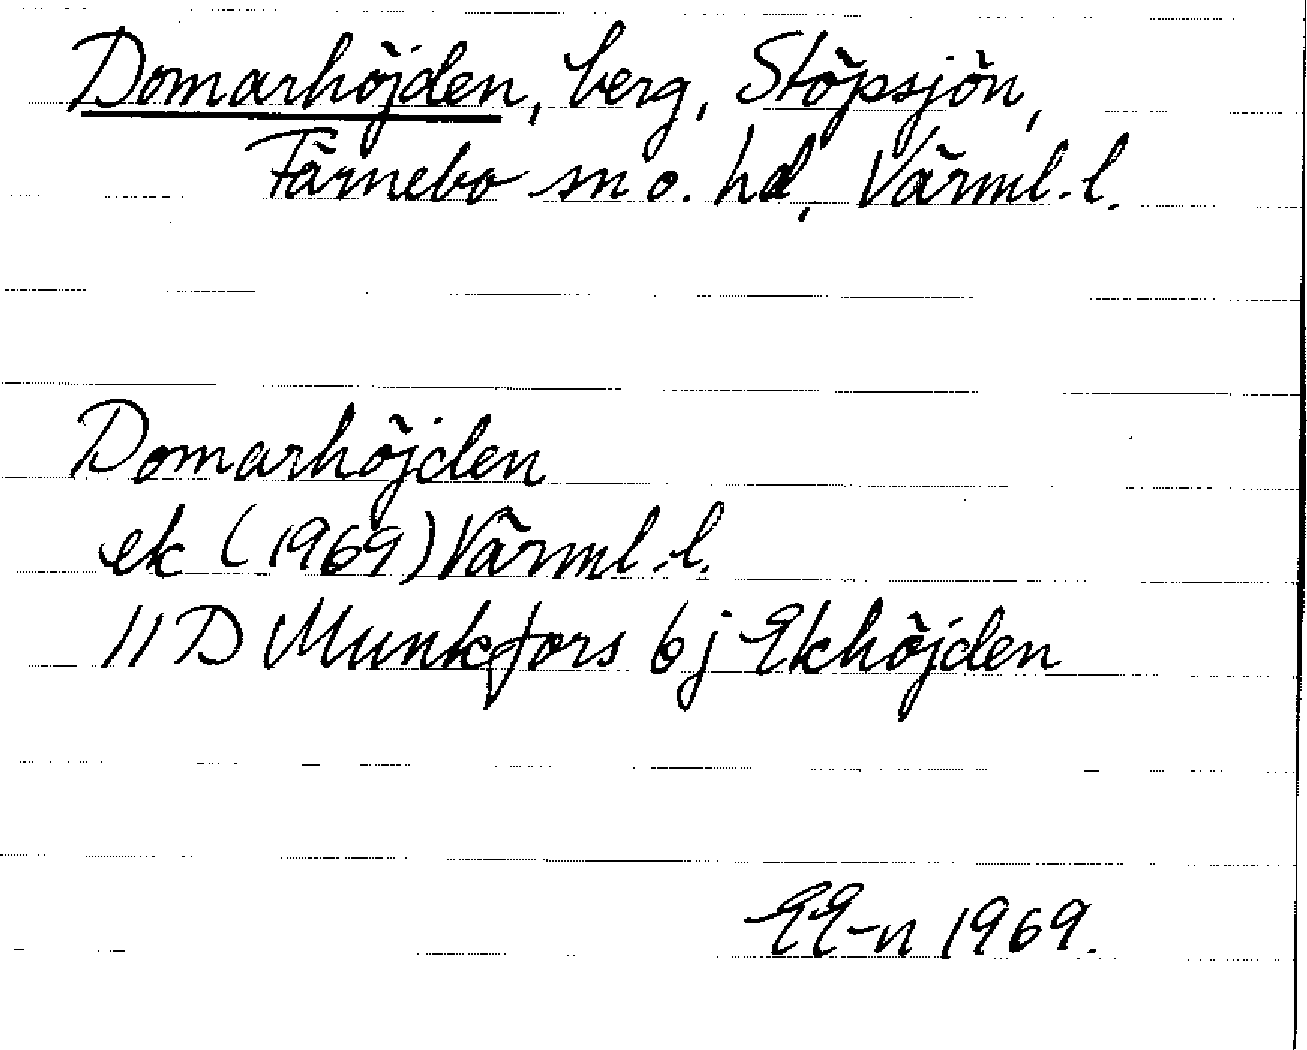 Domarhöjden, berg, Stöpsjön,
Färnebo sn o. hd, Värml. l.
Domarhöjden
ek (1969) Värml. l.
11 D Munkfors 6 j Ekhöjden
EE-n 1969.